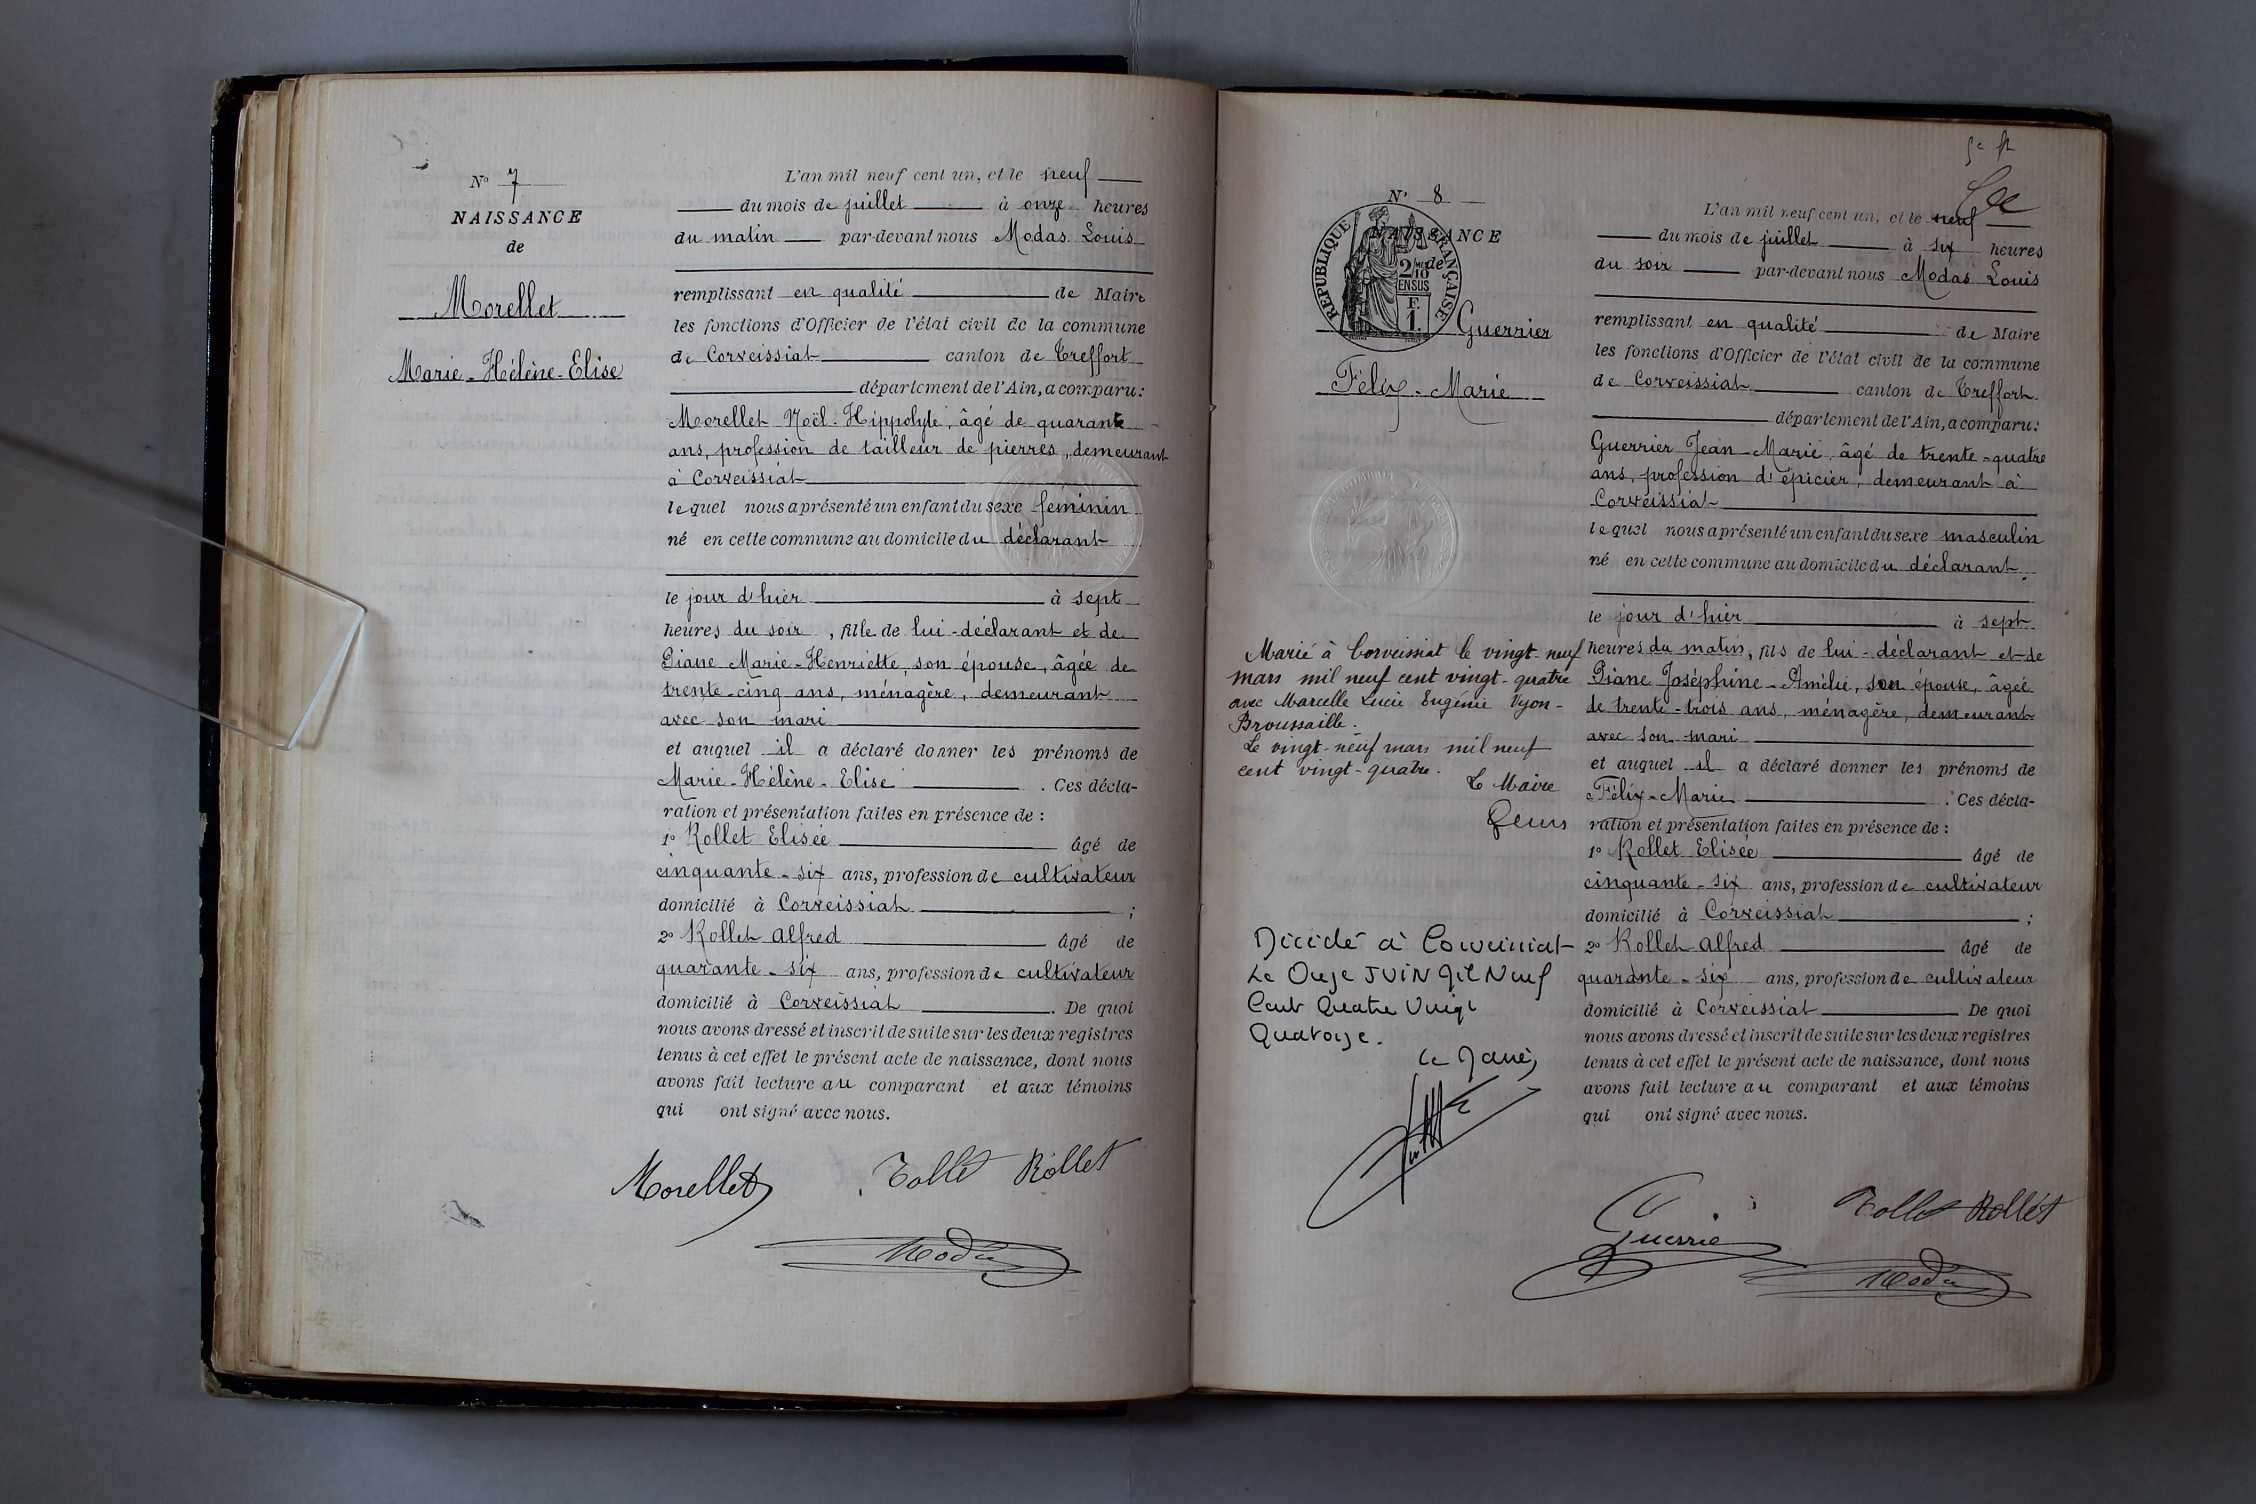 N° 7
NAISSANCE
de
Morellet
Marie-Hélène-Elise
L'an mil neuf cent un, et le neuf
du mois de juillet à onze heures
du matin par-devant nous Modas Louis
remplissant en qualité de Maire
les fonctions d'Officier de l'état civil de la commune
de Corveissiat canton de Treffort
département de l'Ain, a comparu:
Morellet Noël-Hippolyte, âgé de quarante
ans, profession de tailleur de pierres, demeurant
à Corveissiat
lequel nous a présenté un enfant du sexe féminin
né en cette commune au domicile du déclarant
le jour d'hier à sept
heures du soir, fille de lui-déclarant et de
Piane Marie-Henriette, son épouse, âgée de
trente-cinq ans, ménagère, demeurant
avec son mari
et auquel il a déclaré donner les prénoms de
Marie-Hélène-Elise. Ces décla-
ration et présentation faites en présence de :
1° Rollet Elisée âgé de
cinquante-six ans, profession de cultivateur
domicilié à Corveissiat ;
2° Rollet Alfred âgé de
quarante-six ans, profession de cultivateur
domicilié à Corveissiat. De quoi
nous avons dressé et inscrit de suite sur les deux registres
tenus à cet effet le présent acte de naissance, dont nous
avons fait lecture au comparant et aux témoins
qui ont signé avec nous.
Morellet Rollet Rollet
Modas
N° 8
NAISSANCE
de
RÉPUBLIQUE FRANÇAISE
2/10 MES
EN SUS
F.
1.
Guerrier
Félix-Marie
L'an mil neuf cent un, et le neuf
du mois de juillet à six heures
du soir par-devant nous Modas Louis
remplissant en qualité de Maire
les fonctions d'Officier de l'état civil de la commune
de Corveissiat canton de Treffort
département de l'Ain, a comparu:
Guerrier Jean-Marie, âgé de trente-quatre
ans, profession d'épicier, demeurant à
Corveissiat
lequel nous a présenté un enfant du sexe masculin
né en cette commune au domicile du déclarant.
le jour d'hier à sept
heures du matin, fils de lui-déclarant et de
Piane Joséphine-Amélie, son épouse, âgée
de trente-trois ans, ménagère, demeurant
avec son mari
et auquel il a déclaré donner les prénoms de
Félix-Marie. Ces décla-
ration et présentation faites en présence de :
1° Rollet Elisée âgé de
cinquante-six ans, profession de cultivateur
domicilié à Corveissiat ;
2° Rollet Alfred âgé de
quarante-six ans, profession de cultivateur
domicilié à Corveissiat De quoi
nous avons dressé et inscrit de suite sur les deux registres
tenus à cet effet le présent acte de naissance, dont nous
avons fait lecture au comparant et aux témoins
qui ont signé avec nous.
Marié à Corveissiat le vingt-neuf
mars mil neuf cent vingt-quatre
avec Marcelle Lucie Eugénie Vyon-
Broussaille.
Le vingt-neuf mars mil neuf
cent vingt-quatre.
Le Maire
Décédé à Corveissiat
Le Onze JUIN Mil Neuf
Cent Quatre Vingt
Quatorze.
Le Maire,
Guerrier Rollet Rollet
Modas